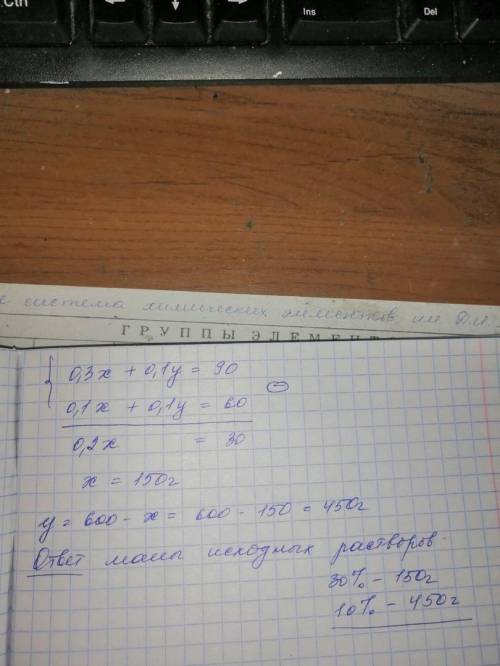 Ctrl
Ins
Del
система химических элементов им. Д.И.
ГРУППЫ ЭЛЕМЕНТ
0,3x + 0,1y = 90
0,1x + 0,1y = 60
0,2x = 30
x = 150г
y = 600 - x = 600 - 150 = 450г
Ответ массы исходных растворов
30% - 150г
10% - 450г